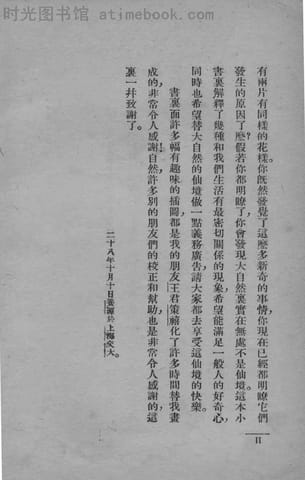 时光图书馆 - atimebook.com
有兩片有同樣的花樣。你旣然發覺了這麽多新奇的事情,你現在已經都明瞭它們
發生的原因了麽?假若你都明瞭了,你會發現大自然裏實在無處不是仙境。這本小
書裏解釋了幾種和我們生活有最密切關係的現象,希望能滿足一般人的好奇心,
同時也希望替大自然的仙境做一點義務廣告,請大家都去享受這仙境的快樂。
書裏面許多幅有趣味的插圖都是我的朋友王君策緒化了許多時間替我畫
成的,非常令人感謝!自然,許多別的朋友們的校正和幫助,也是非常令人感謝的,這
裏一幷致謝了。
二十八年十月十日 於上海交大。
II